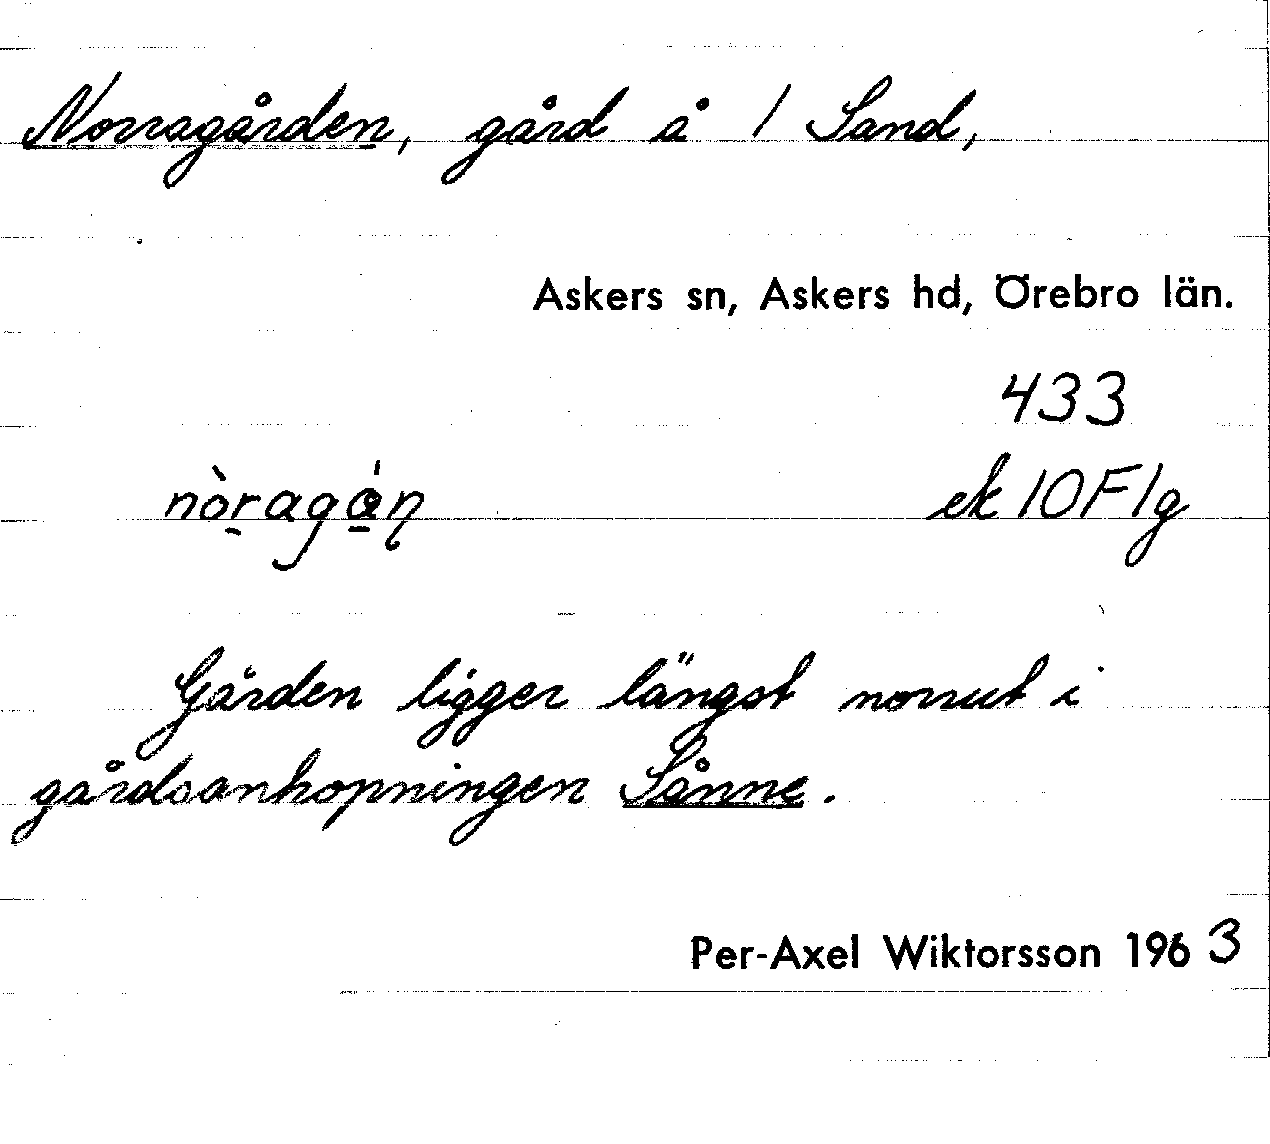 Norragården, gård å 1 Sand,
Askers sn, Askers hd, Örebro län.
433
ek 10F1g
Gården ligger längst norrut i
gårdsanhopningen Sånne.
Per-Axel Wiktorsson 1963